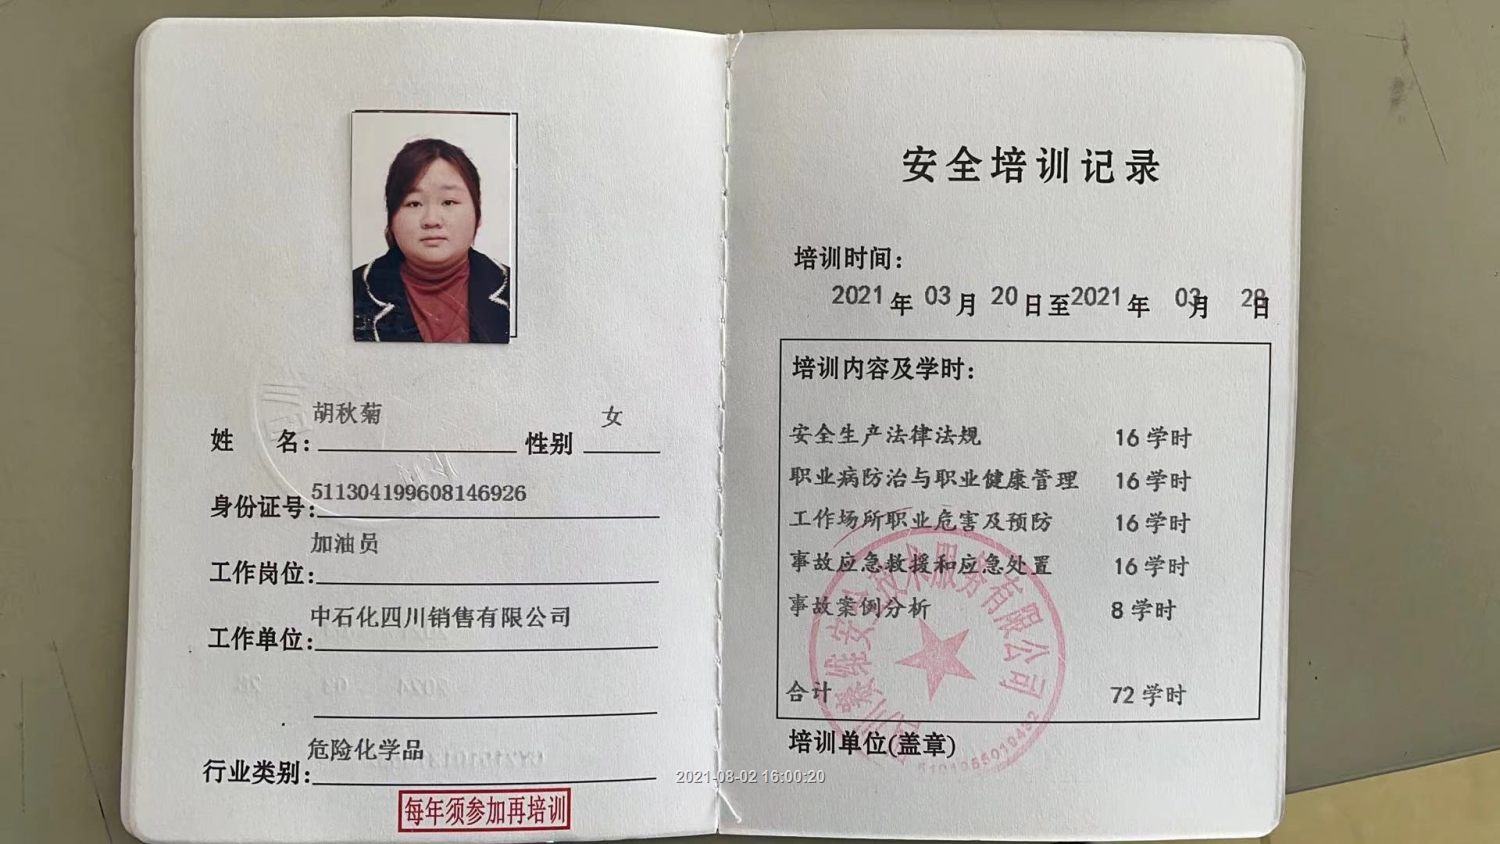 胡秋菊 女
姓 名: 性别
511304199608146926
身份证号:
加油员
工作岗位:
中石化四川销售有限公司
工作单位:
危险化学品
行业类别:
每年须参加再培训
安全培训记录
培训时间:
2021 年 03 月 20 日至 2021 年 03 月 28 日
培训内容及学时:
安全生产法律法规 16 学时
职业病防治与职业健康管理 16 学时
工作场所职业危害及预防 16 学时
事故应急救援和应急处置 16 学时
事故案例分析 8 学时
合计 72 学时
培训单位(盖章)
安全技术服务有限公司
2021-08-02 16:00:20